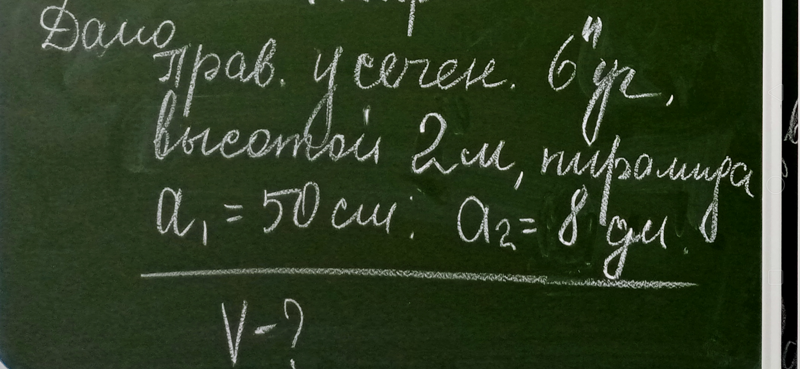 Дано
прав. усечен. 6"уг,
высотой 2м, пирамида
a₁ = 50 см; a₂ = 8 дм.
V - ?